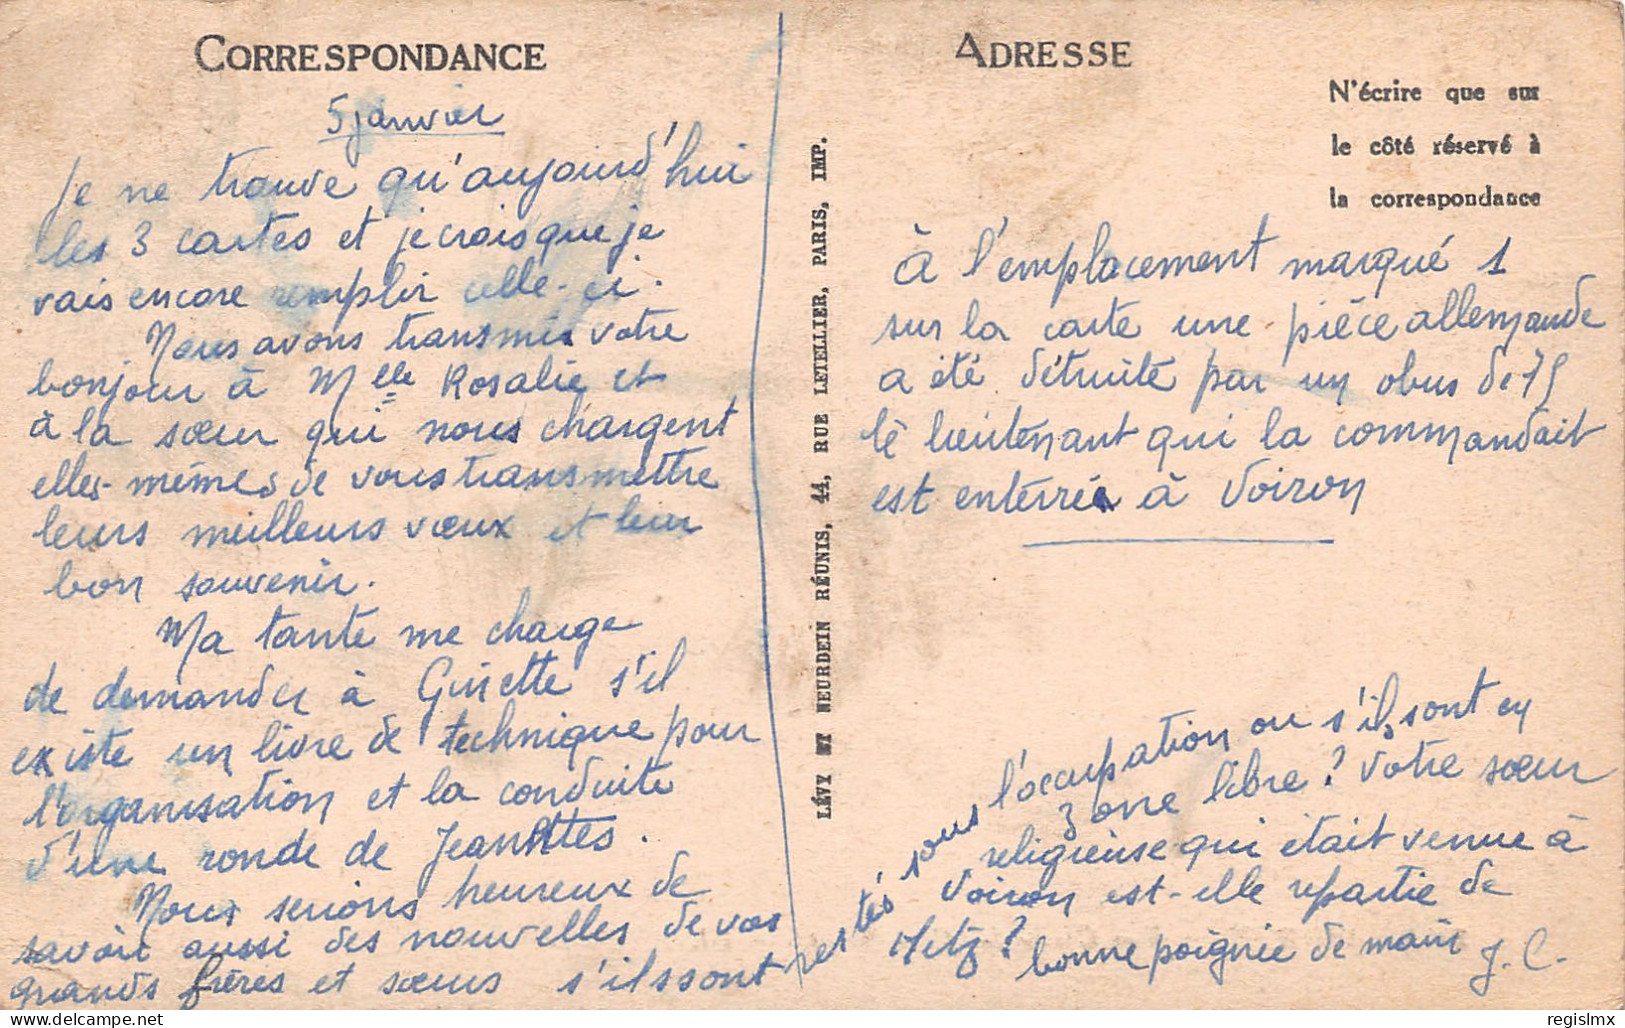 CORRESPONDANCE
5 janvier
Je ne trouve qu'aujourd'hui
les 3 cartes et je crois que je
vais encore remplir celle-ci.
Nous avons transmis votre
bonjour à Mlle Rosalie et
à la sœur qui nous chargent
elles-mêmes de vous transmettre
leurs meilleurs vœux et leur
bon souvenir.
Ma tante me charge
de demander à Ginette s'il
existe un livre de technique pour
l'organisation et la conduite
d'une ronde de Jeannettes.
Nous serions heureux de
savoir aussi des nouvelles de vos
grands frères et sœurs s'ils sont restés sous
l'occupation ou s'ils sont en
zone libre ? Votre sœur
religieuse qui était venue à
Voiron est-elle repartie de
Metz ? bonne poignée de main J. C.
LÉVY ET NEURDEIN RÉUNIS, 44, RUE LETELLIER, PARIS, IMP.
ADRESSE
N'écrire que sur
le côté réservé à
la correspondance
à l'emplacement marqué 1
sur la carte une pièce allemande
a été détruite par un obus de 75
le lieutenant qui la commandait
est enterré à Voiron
© delcampe.net
regislmx